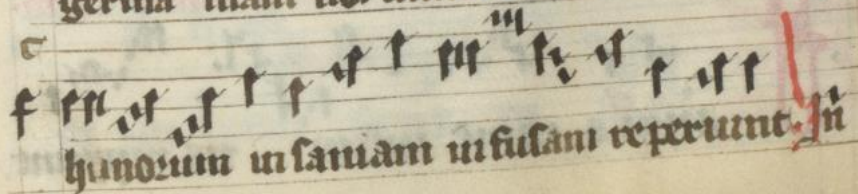 hunorum insaniam infusam reperiunt. In